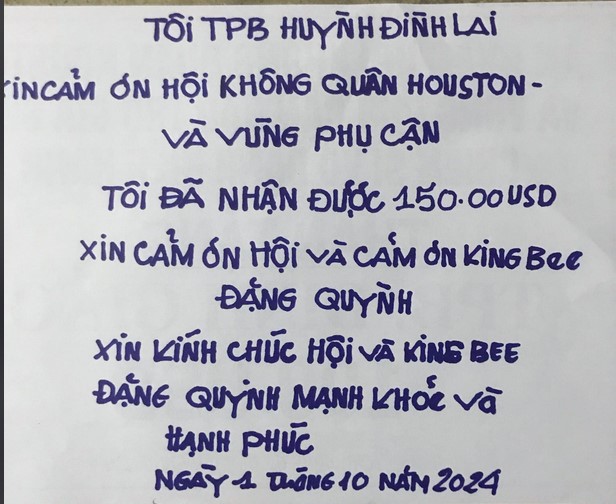 TÔI TPB HUỲNH ĐÌNH LAI
XIN CẢM ƠN HỘI KHÔNG QUÂN HOUSTON -
VÀ VÙNG PHỤ CẬN
TÔI ĐÃ NHẬN ĐƯỢC 150.00 USD
XIN CẢM ƠN HỘI VÀ CẢM ƠN KING Bee
ĐẶNG QUỲNH
XIN KÍNH CHÚC HỘI VÀ KING BEE
ĐẶNG QUỲNH MẠNH KHỎE VÀ
HẠNH PHÚC
NGÀY 1 THÁNG 10 NĂM 2024